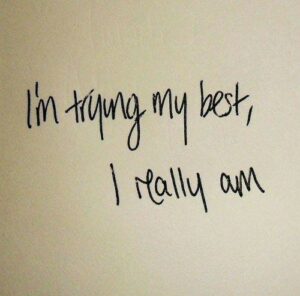 I'm trying my best,
I really am